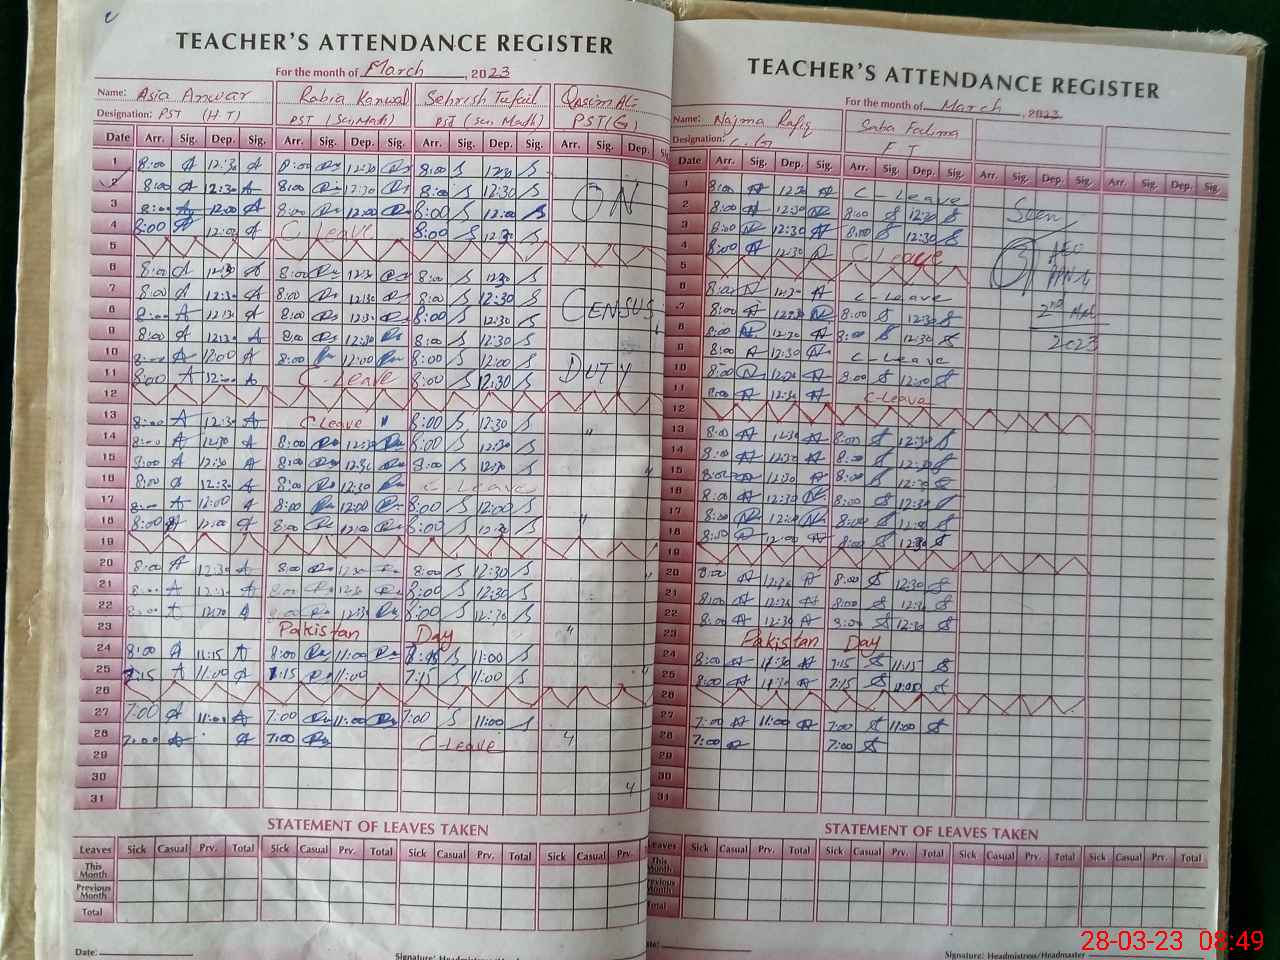 TEACHER'S ATTENDANCE REGISTER
For the month of March, 2023
Name: Asia Anwar Rabia Kanwal Sehrish Tufail Qasim Ali
Designation: PST (H.T) PST (Sci, Math) PST (Sci, Math) PST (G)
Date Arr. Sig. Dep. Sig. Arr. Sig. Dep. Sig. Arr. Sig. Dep. Sig. Arr. Sig. Dep. Sig.
1 8:00 12:30 8:00 12:30 8:00 12:30
2 8:00 12:30 8:00 12:30 8:00 12:30 ON
3 8:00 12:00 8:00 12:00 8:00 12:00
4 8:00 12:00 C Leave 8:00 12:30
5
6 8:00 12:30 8:00 12:30 8:00 12:30
7 8:00 12:30 8:00 12:30 8:00 12:30 CENSUS
8 8:00 12:30 8:00 12:30 8:00 12:30
9 8:00 12:30 8:00 12:30 8:00 12:30
10 8:00 12:00 8:00 12:00 8:00 12:00 DUTY
11 8:00 12:00 C-Leave 8:00 12:30
12
13 8:00 12:30 C Leave 8:00 12:30
14 8:00 12:30 8:00 12:30 8:00 12:30 "
15 8:00 12:30 8:00 12:30 8:00 12:30
16 8:00 12:30 8:00 12:30 C Leave
17 8:00 12:00 8:00 12:00 8:00 12:00
18 8:00 12:00 8:00 12:00 8:00 12:30 "
19
20 8:00 12:30 8:00 12:30 8:00 12:30
21 8:00 12:30 8:00 12:30 8:00 12:30
22 8:00 12:30 8:00 12:30 8:00 12:30
23 Pakistan Day "
24 8:00 11:15 8:00 11:00 11:00
25 7:15 11:00 7:15 11:00 7:15 11:00
26
27 7:00 11:00 7:00 11:00 7:00 11:00
28 7:00 7:00 C-Leave
29
30
31
STATEMENT OF LEAVES TAKEN
Leaves Sick Casual Prv. Total Sick Casual Prv. Total Sick Casual Prv. Total Sick Casual Prv.
This Month
Previous Month
Total
Date:
Signature: Headmistress/Headmaster
TEACHER'S ATTENDANCE REGISTER
For the month of March, 2023
Name: Najma Rafiq Saba Fatima
Designation:
Date Arr. Sig. Dep. Sig. Arr. Sig. Dep. Sig. Arr. Sig. Dep. Sig. Arr. Sig. Dep. Sig.
1 8:00 12:30 C-Leave
2 8:00 12:30 8:00 12:30 Seen
3 8:00 12:30 8:00 12:30
4 8:00 12:30 C Leave AEO
5
6 8:00 12:30 C-Leave
7 8:00 12:30 8:00 12:30 2nd Mar
8 8:00 12:30 8:00 12:30
9 8:00 12:30 C-Leave 2023
10 8:00 12:30 8:00 12:00
11 8:00 12:30 C-Leave
12
13 8:00 12:30 8:00 12:30
14 8:00 12:30 8:00 12:30
15 8:00 12:30 8:00 12:30
16 8:00 12:30 8:00 12:30
17 8:00 12:00 8:00 12:00
18 8:00 12:00 8:00 12:30
19
20 8:00 12:30 8:00 12:30
21 8:00 12:30 8:00 12:30
22 8:00 12:30 8:00 12:30
23 Pakistan Day
24 8:00 11:30 7:15 11:15
25 8:00 11:30 7:15 11:00
26
27 7:00 11:00 7:00 11:00
28 7:00 7:00
29
30
31
STATEMENT OF LEAVES TAKEN
Leaves Sick Casual Prv. Total Sick Casual Prv. Total Sick Casual Prv. Total Sick Casual Prv. Total
This Month
Previous Month
Total
Signature: Headmistress/Headmaster
28-03-23 08:49